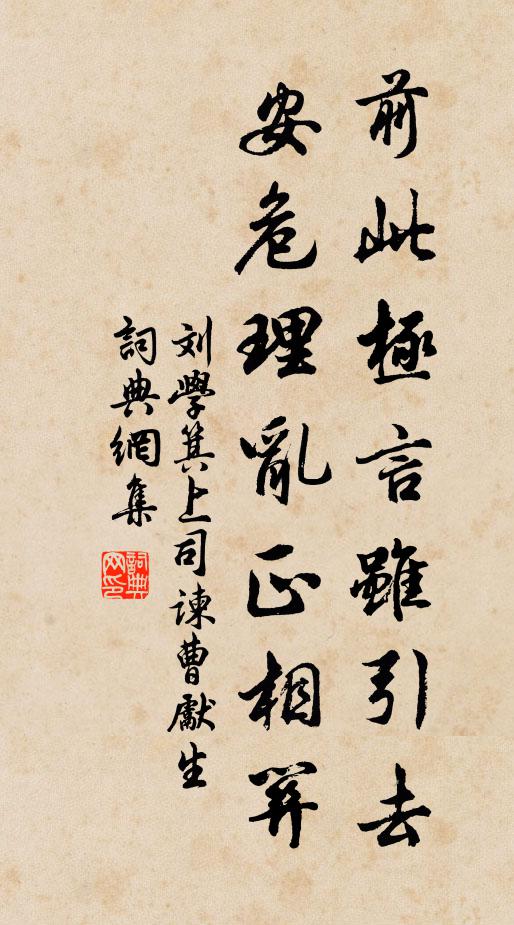 前此極言雖引去
安危理亂正相關
刘學箕上司諫曹獻生
詞典網集
詞典
网印